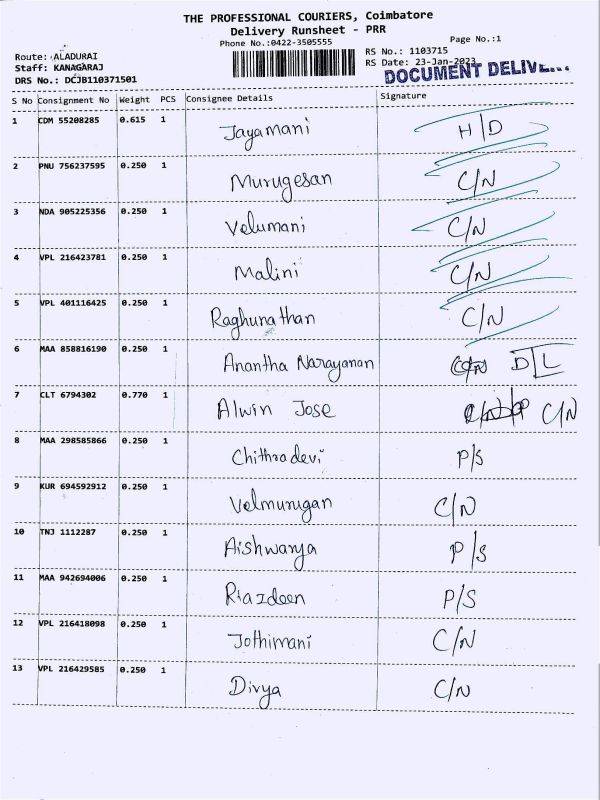 THE PROFESSIONAL COURIERS, Coimbatore
Delivery Runsheet - PRR
Phone No.:0422-3505555
Page No.:1
Route: ALADURAI
Staff: KANAGARAJ
DRS No.: DCJB110371501
RS No.: 1103715
RS Date: 23-Jan-2023
DOCUMENT
S No Consignment No Weight PCS Consignee Details Signature
1 CDM 55208285 0.615 1 Jayamani H/D
2 PNU 756237595 0.250 1 Murugesan C/N
3 NDA 905225356 0.250 1 Velumani C/N
4 VPL 216423781 0.250 1 Malini C/N
5 VPL 401116425 0.250 1 Raghunathan C/N
6 MAA 858816190 0.250 1 Anantha Narayanan D/L
7 CLT 6794302 0.770 1 Alwin Jose C/N
8 MAA 298585866 0.250 1 Chithradevi P/S
9 KUR 694592912 0.250 1 Velmurugan C/N
10 TNJ 1112287 0.250 1 Aishwarya P/S
11 MAA 942694006 0.250 1 Riazdeen P/S
12 VPL 216418098 0.250 1 Jothimani C/N
13 VPL 216429585 0.250 1 Divya C/N